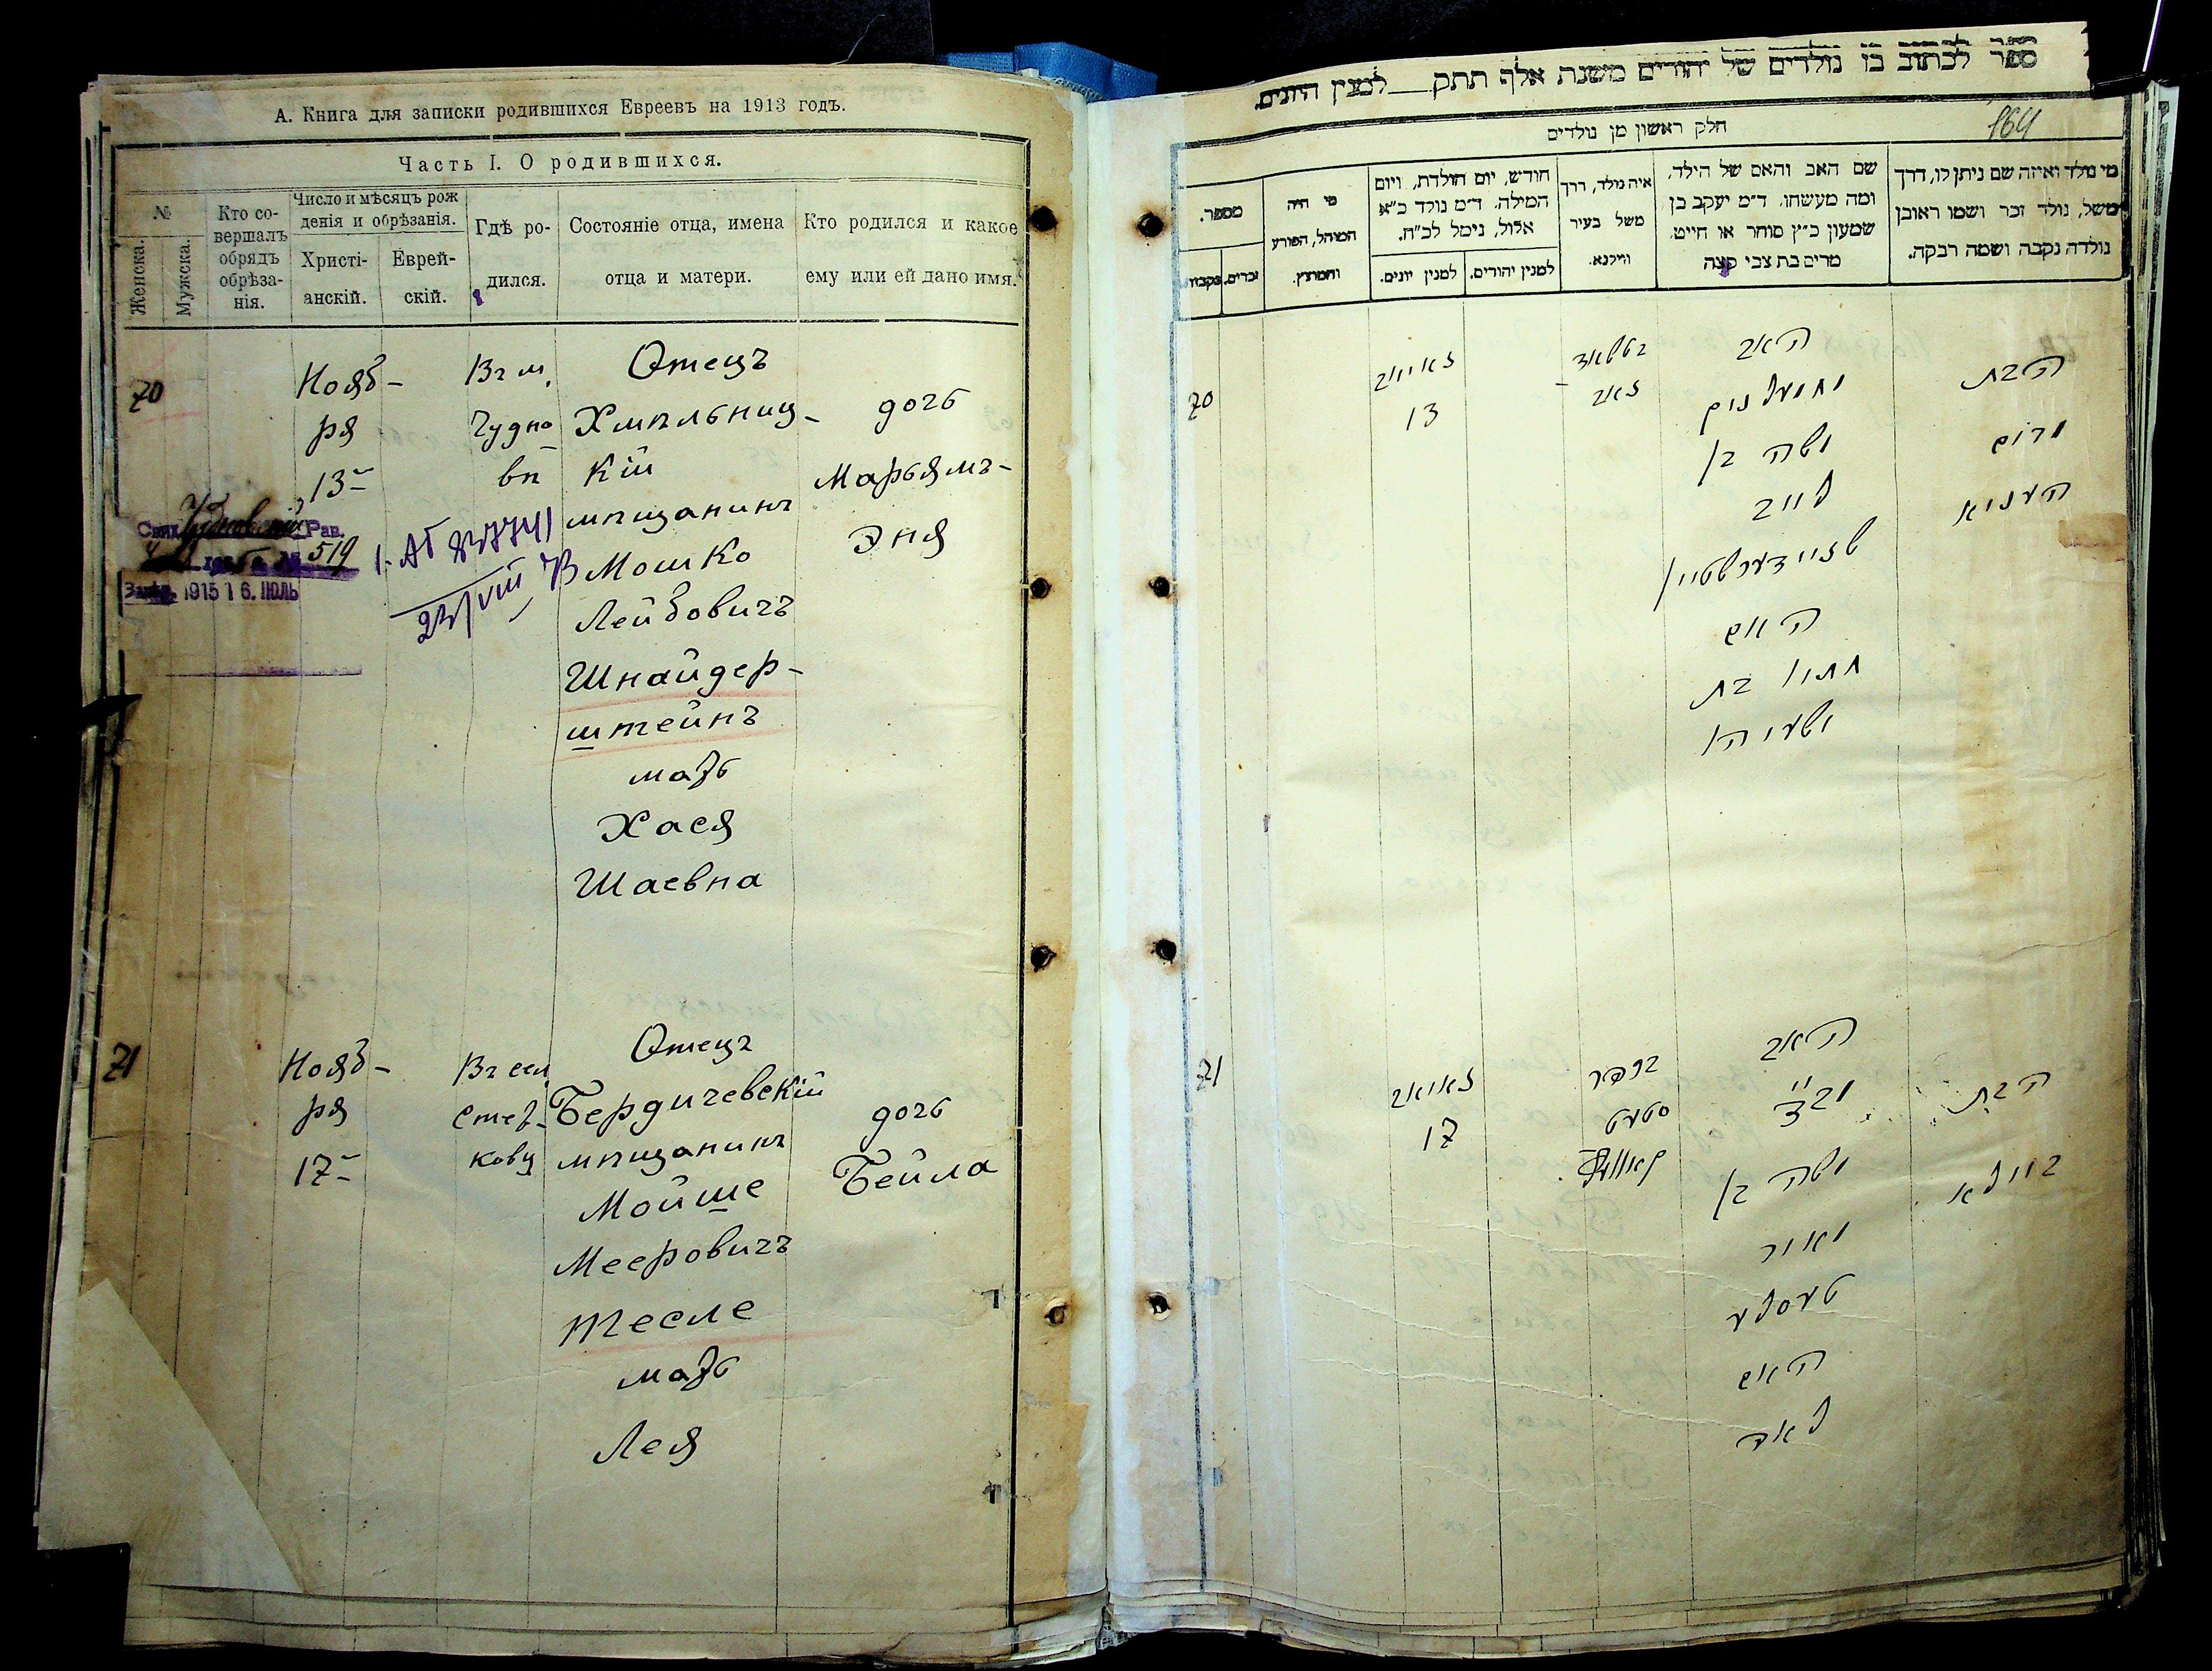 А. Книга для записки родившихся Евреевъ на 1913 годъ.
Часть I. О родившихся.
№
Женска.
Мужска.
Кто со-
вершалъ
обрядъ
обрѣза-
нія.
Число и мѣсяцъ рож
денія и обрѣзанія.
Христі-
анскій.
Еврей-
скій.
Гдѣ ро-
дился.
Состояніе отца, имена
отца и матери.
Кто родился и какое
ему или ей дано имя.
70
Нояб-
ря
13-
Въ м.
Чудно
вѣ
Отецъ
Хмѣльниц-
кій
мѣщанинъ
Мошко
Лейбовичъ
Шнайдер-
штейнъ
мать
Хася
Шаевна
дочь
Марьямъ-
Эня
Рав.
519
1915 16. ІЮЛЬ
71
Нояб-
ря
17-
Отецъ
Бердичевскій
мѣщанинъ
Мойше
Мееровичъ
Тесле
мать
Лея
дочь
Бейла
ספר לכתוב בו נולדים של יהודים משנת אלף תתק למנין היונים.
164
חלק ראשון מן נולדים
מספר.
נקבות
זכרים.
מי היה
המוהל, הפורע
והמוצץ.
חודש, יום הולדת, ויום
המילה. ד״מ נולד כ״א
אלול, נימל לכ״ח.
למנין יונים.
למנין יהודים.
איה נולד, דרך
משל בעיר
ווילנא.
שם האב והאם של הילד,
ומה מעשהו. ד״מ יעקב בן
שמעון כ״ץ סוחר או חייט.
מרים בת צבי קצה
מי נולד ואיזה שם ניתן לו, דרך
משל, נולד זכר ושמו ראובן
נולדה נקבה ושמה רבקה.
70
13
האב
משה בן
לייב
שניידערשטיין
האם
חסיא בת
הבת
מרים
71
17
האב
משה בן
מאיר
טעסלע
האם
לאה
הבת
ביילא